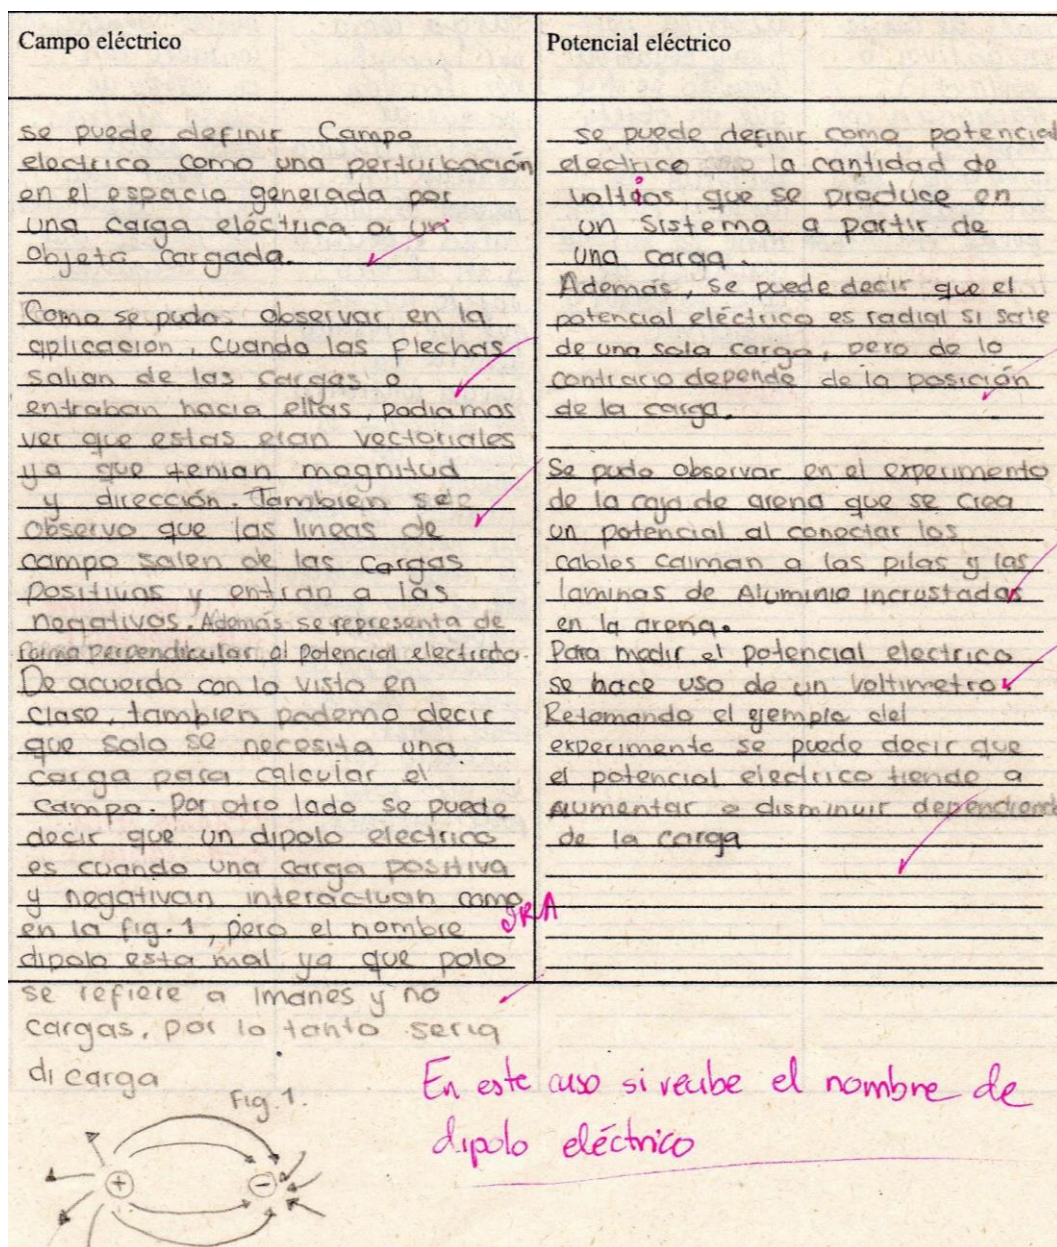 Campo eléctrico
se puede definir Campo
electrico como una perturbación
en el espacio generada por
una carga eléctrica o un
objeto cargada.
Como se pudo observar en la
aplicacion, cuando las flechas
salian de las cargas o
entraban hacia ellas, podiamos
ver que estas eran vectoriales
ya que tenian magnitud
y dirección. Tambien se
observo que las lineas de
campo salen de las cargas
positivas y entran a las
negativas. Además se representa de
forma perpendicular al potencial electrico.
De acuerdo con lo visto en
clase, tambien podemo decir
que solo se necesita una
carga para calcular el
campo. Por otro lado se puede
decir que un dipolo electrico
es cuando una carga positiva
y negativan interactuan como
en la fig. 1, pero el nombre
dipolo esta mal ya que polo
se refiere a imanes y no
cargas, por lo tanto seria
di carga
Fig. 1.
+
−
Potencial eléctrico
se puede definir como potencial
electrico la cantidad de
voltios que se produce en
un sistema a partir de
una carga.
Además, se puede decir que el
potencial eléctrico es radial si sale
de una sola carga, pero de lo
contrario depende de la posición
de la carga.
Se pudo observar en el experimento
de la caja de arena que se crea
un potencial al conectar los
cables caiman a las pilas y las
laminas de Aluminio incrustadas
en la arena.
Para medir el potencial electrico
se hace uso de un voltimetro.
Retomando el ejemplo del
experimento se puede decir que
el potencial electrico tiende a
aumentar o disminuir dependiendo
de la carga
En este caso si recibe el nombre de
dipolo eléctrico